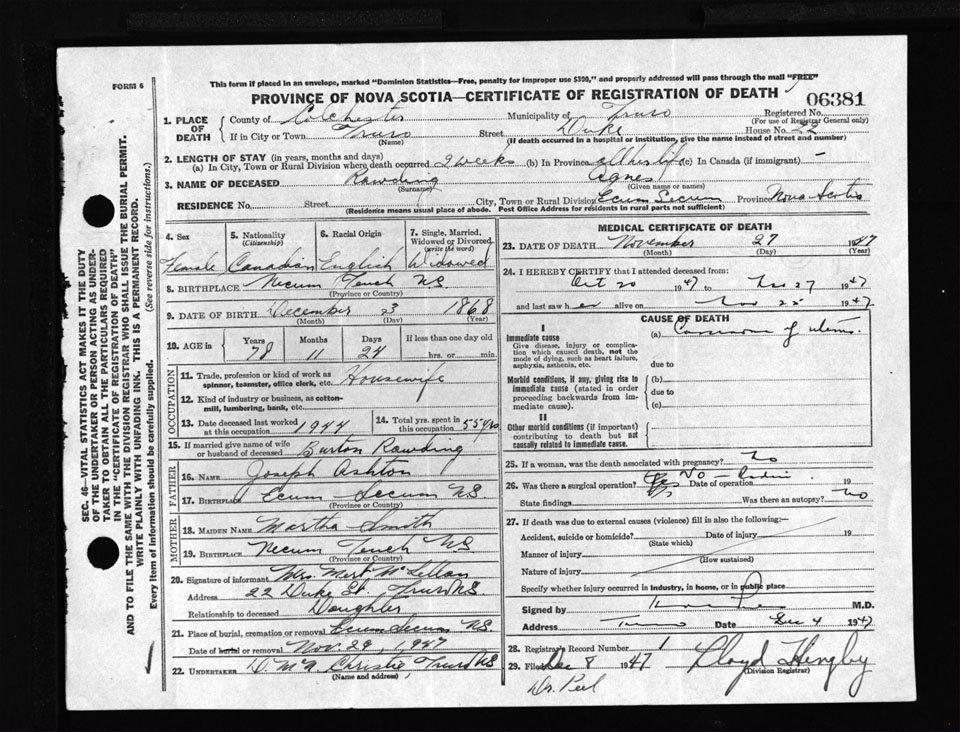 FORM 6
This form if placed in an envelope, marked "Dominion Statistics—Free, penalty for improper use $300," and properly addressed will pass through the mail "FREE"
PROVINCE OF NOVA SCOTIA—CERTIFICATE OF REGISTRATION OF DEATH
06381
1. PLACE OF DEATH
County of Colchester Municipality of Truro Registered No.
(For use of Registrar General only)
If in City or Town Truro Street Duke House No. 22
(Name) (If death occurred in a hospital or institution, give the name instead of street and number)
2. LENGTH OF STAY (in years, months and days)
(a) In City, Town or Rural Division where death occurred 2 weeks (b) In Province all her life (c) In Canada (if immigrant) —
3. NAME OF DECEASED Rawding Agnes
(Surname) (Given name or names)
RESIDENCE No. Street City, Town or Rural Division Ecum Secum Province Nova Scotia
(Residence means usual place of abode. Post Office Address for residents in rural parts not sufficient)
4. Sex 5. Nationality (Citizenship) 6. Racial Origin 7. Single, Married, Widowed or Divorced (write the word)
Female Canadian English Widowed
8. BIRTHPLACE Necum Teuch N.S.
(Province or Country)
9. DATE OF BIRTH December 3 1868
(Month) (Day) (Year)
10. AGE in Years Months Days If less than one day old
78 11 24 hrs. or min.
OCCUPATION
11. Trade, profession or kind of work as spinner, teamster, office clerk, etc. Housewife
12. Kind of industry or business, as cotton-mill, lumbering, bank, etc.
13. Date deceased last worked at this occupation 1944
14. Total yrs. spent in this occupation 55 yrs
15. If married give name of wife or husband of deceased Burton Rawding
FATHER
16. NAME Joseph Ashton
17. BIRTHPLACE Ecum Secum N.S.
(Province or Country)
MOTHER
18. MAIDEN NAME Martha Smith
19. BIRTHPLACE Necum Teuch N.S
(Province or Country)
20. Signature of informant Mrs. Mert McLellan
Address 22 Duke St. Truro N.S.
Relationship to deceased Daughter
21. Place of burial, cremation or removal Ecum Secum N.S.
Date of burial or removal Nov. 29, 1947
22. UNDERTAKER D. McA. Christie, Truro N.S
(Name and address)
MEDICAL CERTIFICATE OF DEATH
23. DATE OF DEATH November 27 1947
(Month) (Day) (Year)
24. I HEREBY CERTIFY that I attended deceased from:
Oct 20 1947 to Nov 27 1947
and last saw her alive on Nov 25 1947
CAUSE OF DEATH
I
Immediate cause (a) Carcinoma of uterus.
Give disease, injury or complication which caused death, not the mode of dying, such as heart failure, asphyxia, asthenia, etc.
due to
Morbid conditions, if any, giving rise to immediate cause (stated in order proceeding backwards from immediate cause).
(b)
due to
(c)
II
Other morbid conditions (if important) contributing to death but not causally related to immediate cause.
25. If a woman, was the death associated with pregnancy? no
26. Was there a surgical operation? Date of operation 19
State findings Was there an autopsy? no
27. If death was due to external causes (violence) fill in also the following:—
Accident, suicide or homicide? Date of injury 19
(State which)
Manner of injury
(How sustained)
Nature of injury
Specify whether injury occurred in industry, in home, or in public place
Signed by M.D.
Address Truro Date Dec 4 1947
28. Registrar's Record Number 1
29. Filed Dec 8 1947 Lloyd
(Division Registrar)
Dr. Peel
SEC. 46—VITAL STATISTICS ACT MAKES IT THE DUTY
OF THE UNDERTAKER OR PERSON ACTING AS UNDER-
TAKER TO OBTAIN ALL THE PARTICULARS REQUIRED
IN THE "CERTIFICATE OF REGISTRATION OF DEATH"
AND TO FILE THE SAME WITH THE DIVISION REGISTRAR WHO SHALL ISSUE THE BURIAL PERMIT.
WRITE PLAINLY WITH UNFADING INK. THIS IS A PERMANENT RECORD.
Every item of information should be carefully supplied. (See reverse side for instructions.)